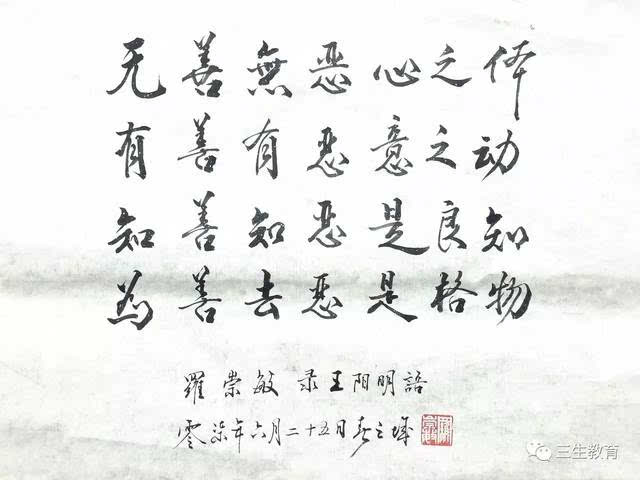 无善無恶心之体
有善有恶意之动
知善知恶是良知
为善去恶是格物
羅崇敏录王阳明語
零柒年六月二十五日春之城
三生教育